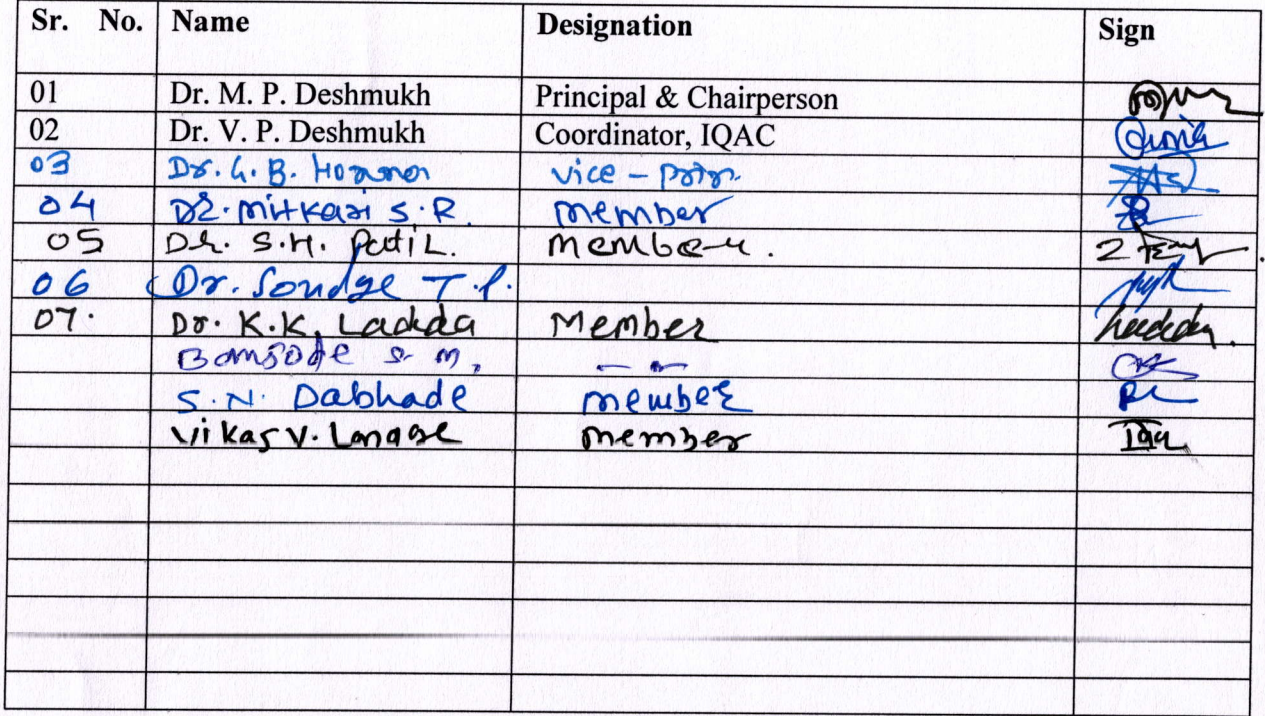 Sr. No. Name Designation Sign
01 Dr. M. P. Deshmukh Principal & Chairperson
02 Dr. V. P. Deshmukh Coordinator, IQAC
03 Dr. G. B. vice –
04 Dr. Mitkari S.R. member
05 Dr. S.H. Patil. Member.
06 Dr. Sondge T.P.
07. Dr. K.K. Ladda Member
Bansode S. M. — " —
S.N. Dabhade member
Vikas V. member